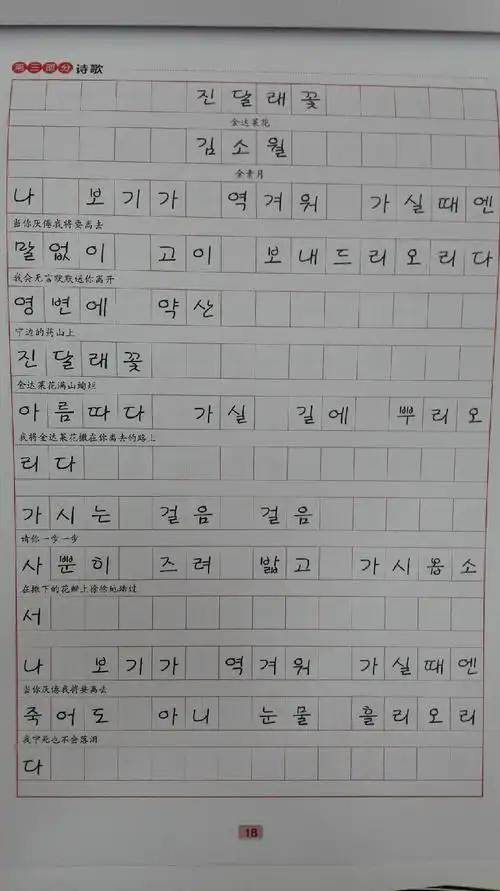 第三部分 诗歌
진달래꽃
金达莱花
김소월
金素月
나 보기가 역겨워 가실때엔
当你厌倦我将要离去
말없이 고이 보내드리오리다
我会无言默默送你离开
영변에 약산
宁边的药山上
진달래꽃
金达莱花满山绚烂
아름따다 가실 길에 뿌리오
我将金达莱花撒在你离去的路上
리다
가시는 걸음 걸음
请你一步一步
사뿐히 즈려 밟고 가시옵소
在撒下的花瓣上徐徐地踏过
서
나 보기가 역겨워 가실때엔
当你厌倦我将要离去
죽어도 아니 눈물 흘리오리
我宁死也不会落泪
다
18